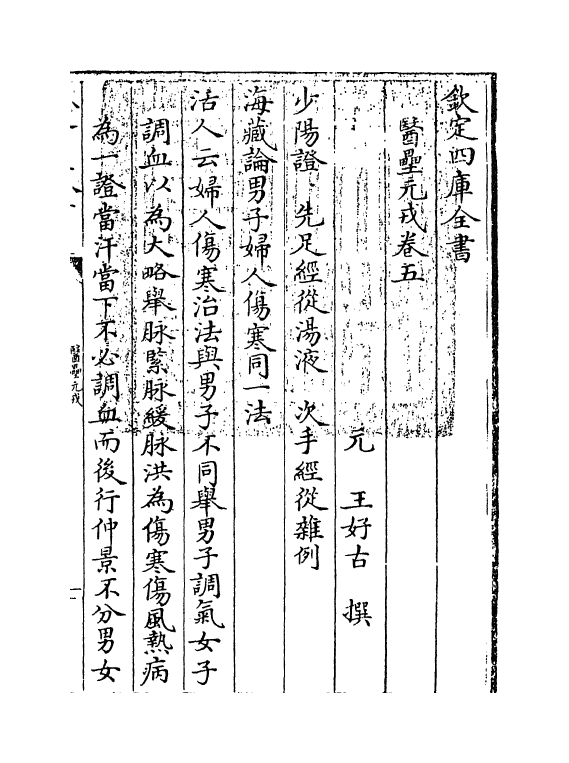 欽定四庫全書
醫壘元戎卷五
元　王好古　撰
少陽證　先足經從湯液　次手經從雜例
海藏論男子婦人傷寒同一法
活人云婦人傷寒治法與男子不同舉男子調氣女子
調血以為大略舉脉緊脉緩脉洪為傷寒傷風熱病
為一證當汗當下不必調血而後行仲景不分男女
醫壘元戎
一